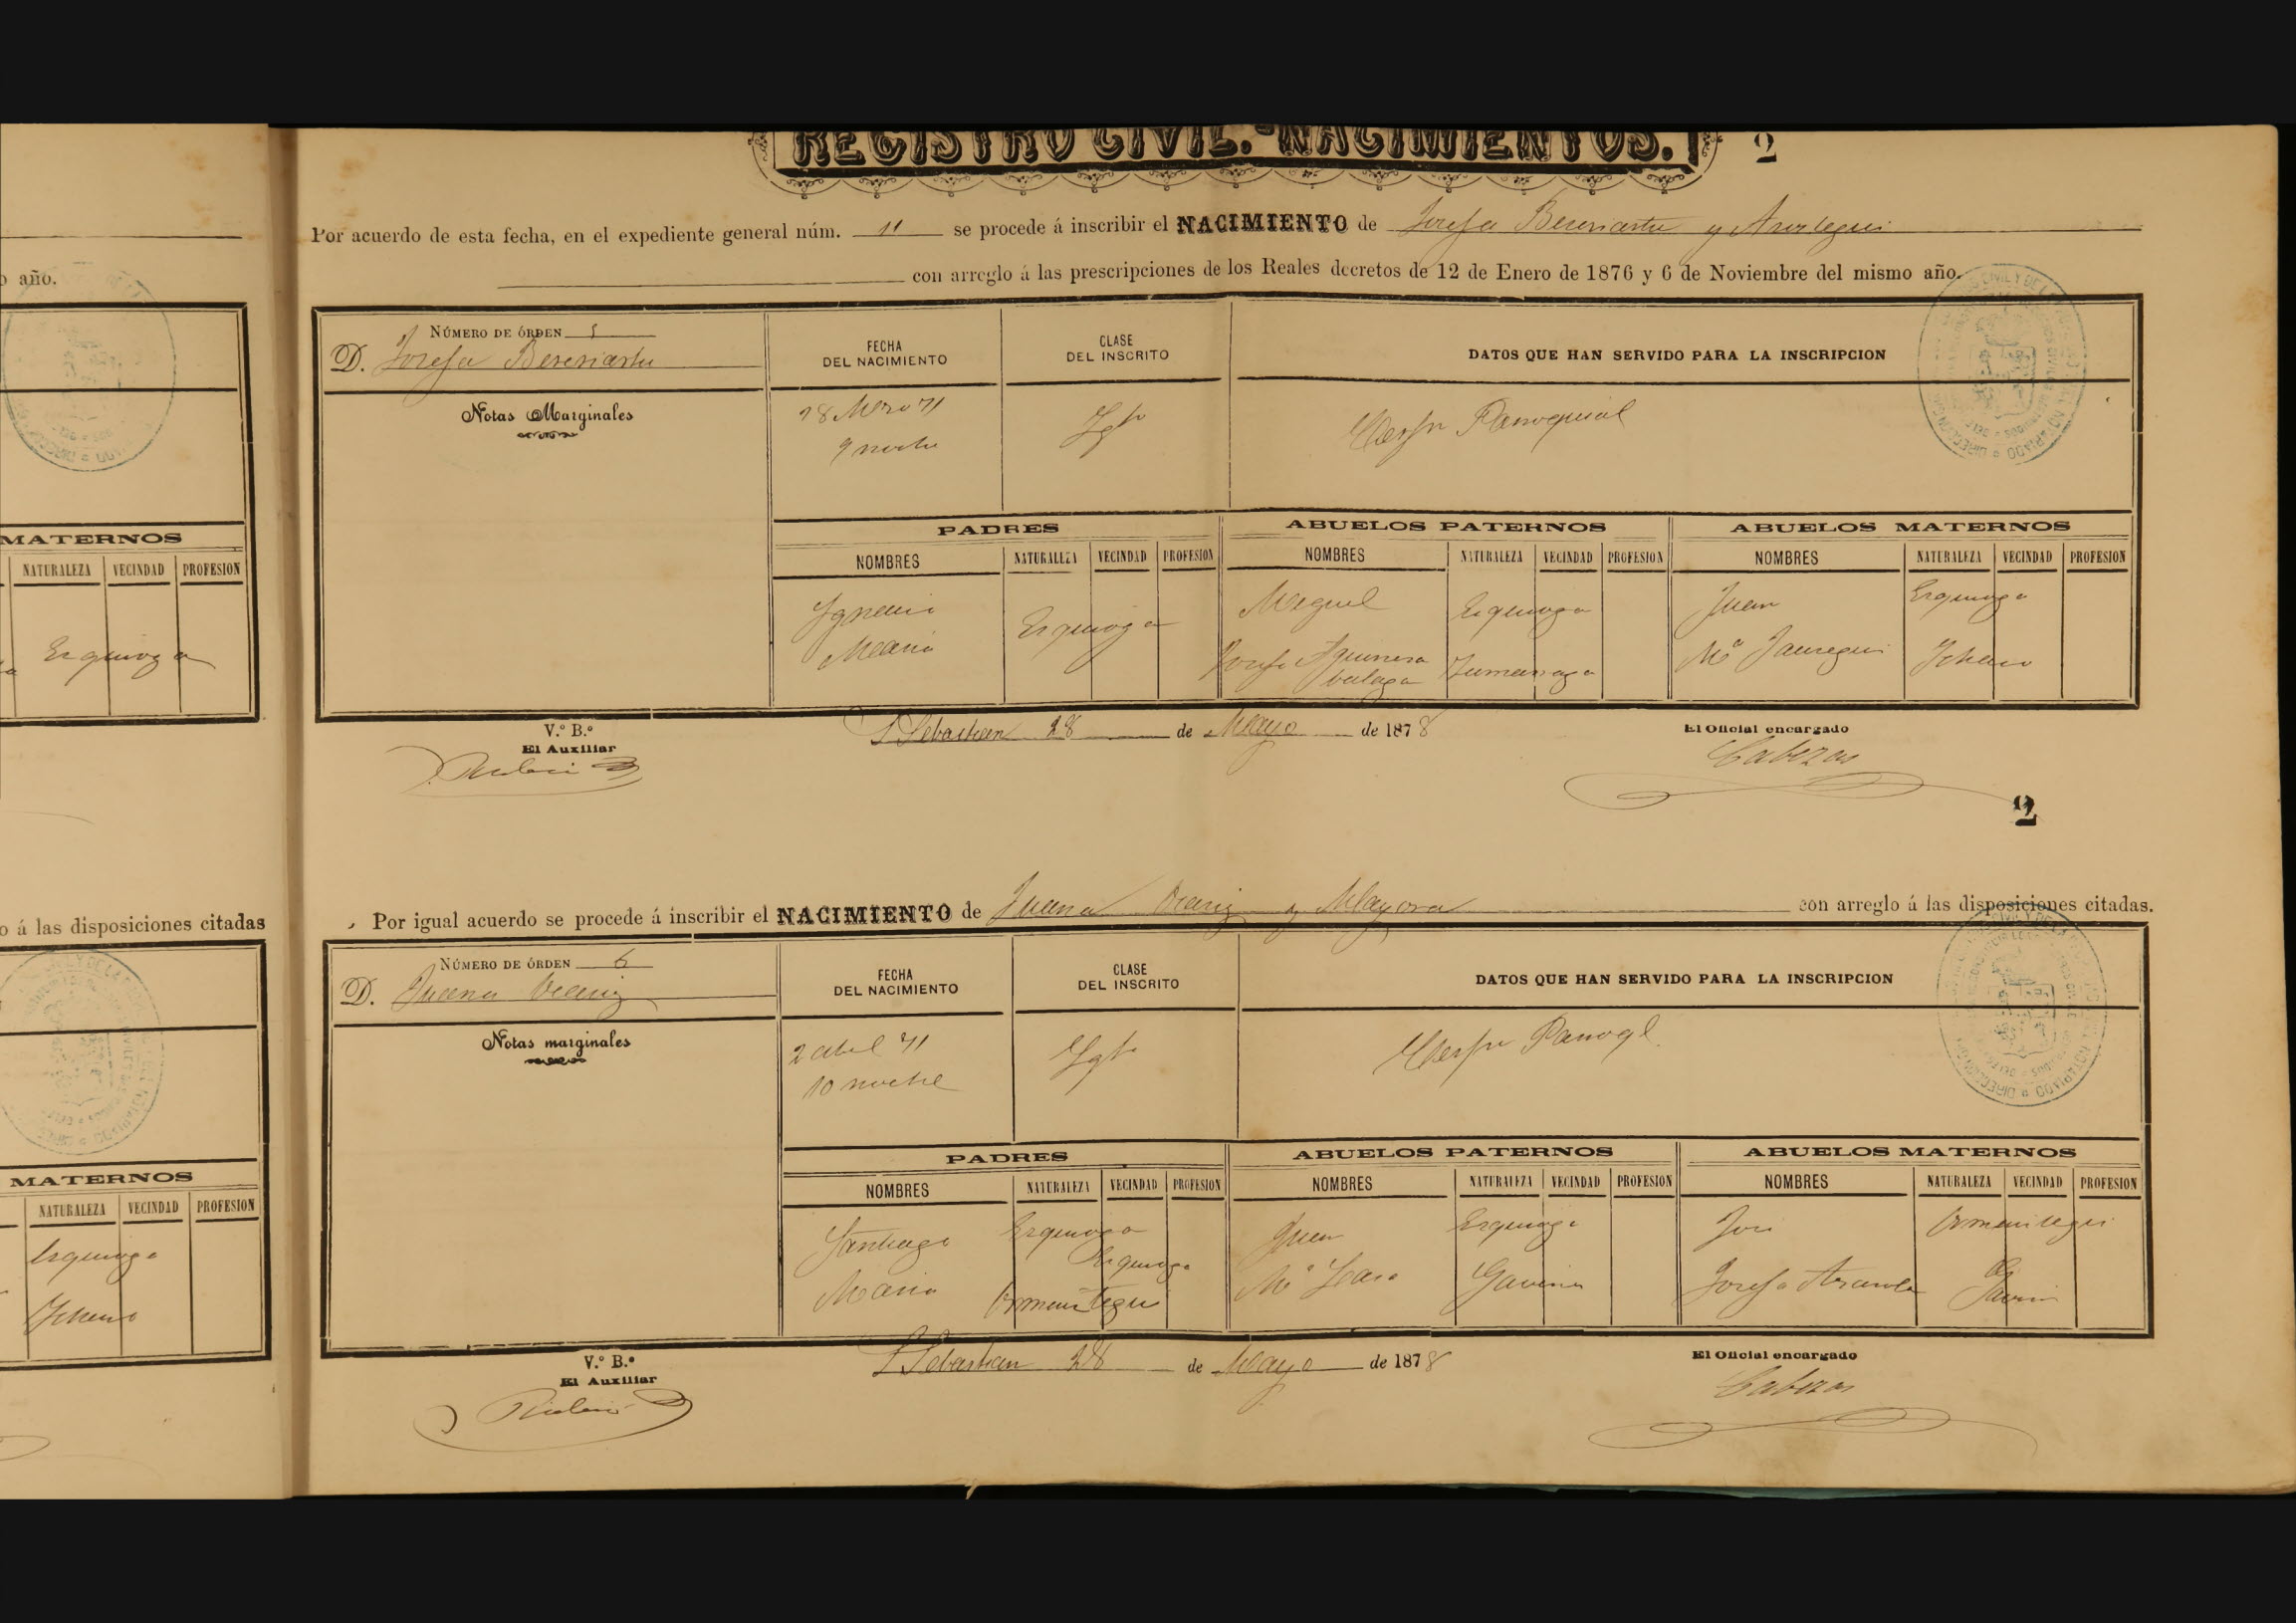 REGISTRO CIVIL.-NACIMIENTOS. 2
Por acuerdo de esta fecha, en el expediente general núm. 11 se procede á inscribir el NACIMIENTO de Josefa Bereriartu y
con arreglo á las prescripciones de los Reales decretos de 12 de Enero de 1876 y 6 de Noviembre del mismo año.
o año.
NÚMERO DE ÓRDEN 5
D. Josefa Bereriartu
FECHA
DEL NACIMIENTO
CLASE
DEL INSCRITO
DATOS QUE HAN SERVIDO PARA LA INSCRIPCION
Notas Marginales
28 Mzo 71
9 noche
Parroquial
MATERNOS
NATURALEZA VECINDAD PROFESION
Ezquioga
PADRES ABUELOS PATERNOS ABUELOS MATERNOS
NOMBRES NATURALEZA VECINDAD PROFESION NOMBRES NATURALEZA VECINDAD PROFESION NOMBRES NATURALEZA VECINDAD PROFESION
Ignacio Ezquioga Miguel Ezquioga Juan Ezquioga
Maria Josefa Zumarraga Mª Jauregui Ichaso
V.º B.º
El Auxiliar
Rubio
S Sebastian 28 de Mayo de 1878
El Oficial encargado
Cabezas
2
o á las disposiciones citadas
Por igual acuerdo se procede á inscribir el NACIMIENTO de Juana y Mayora con arreglo á las disposiciones citadas.
NÚMERO DE ÓRDEN 6
D. Juana
FECHA
DEL NACIMIENTO
CLASE
DEL INSCRITO
DATOS QUE HAN SERVIDO PARA LA INSCRIPCION
Notas marginales
2 Abril 71
10 noche
Parroql.
MATERNOS
NATURALEZA VECINDAD PROFESION
Ezquioga
Ichaso
PADRES ABUELOS PATERNOS ABUELOS MATERNOS
NOMBRES NATURALEZA VECINDAD PROFESION NOMBRES NATURALEZA VECINDAD PROFESION NOMBRES NATURALEZA VECINDAD PROFESION
Santiago Ezquioga Ezquioga Juan Ezquioga José Ormaiztegui
Maria Ormaiztegui Mª Gaviria Josefa Gaviria
V.º B.º
El Auxiliar
Rubio
S Sebastian 28 de Mayo de 1878
El Oficial encargado
Cabezas